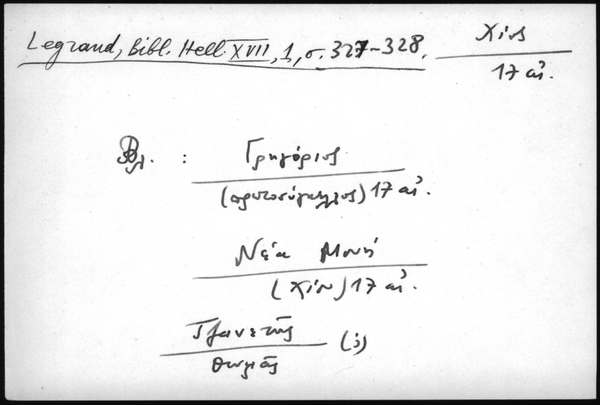 Legrand, Bibl. Hell. XVII, 1, σ. 327-328.
Χίος
17 αἰ.
Βλ. : Γρηγόριος
(πρωτοσύγκελλος) 17 αἰ.
Νέα Μονή
(Χίου) 17 αἰ.
Τζανετής (;)
Θωμᾶς